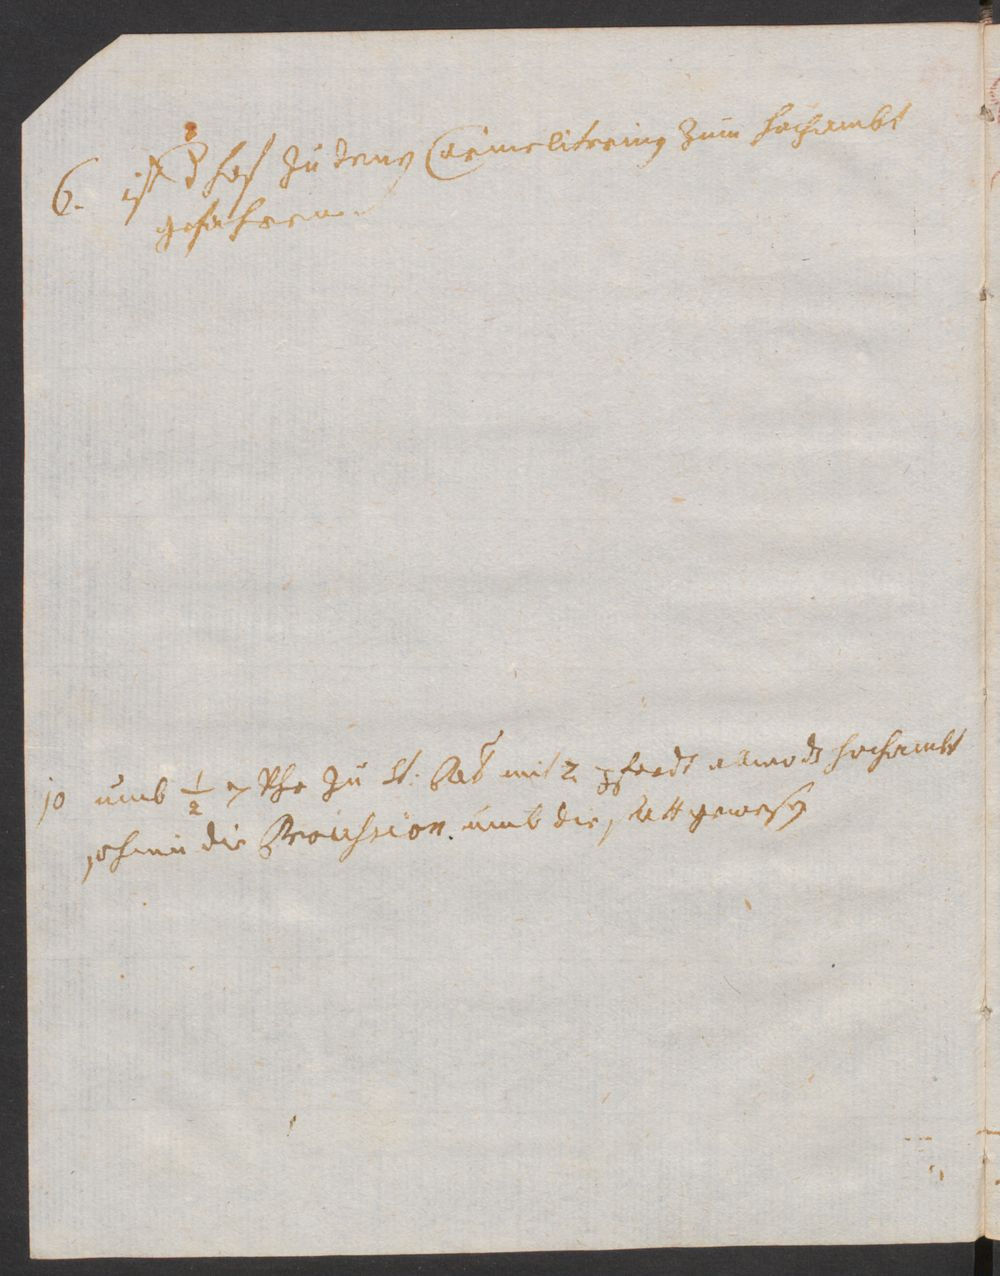 6. ist d hof zu denen Carmelitering zum hochambt
gefahren.
10 umb ½ 7 Uhr zu St. mit 2 pferdt hochambt
die Procession. umb die statt gewesen